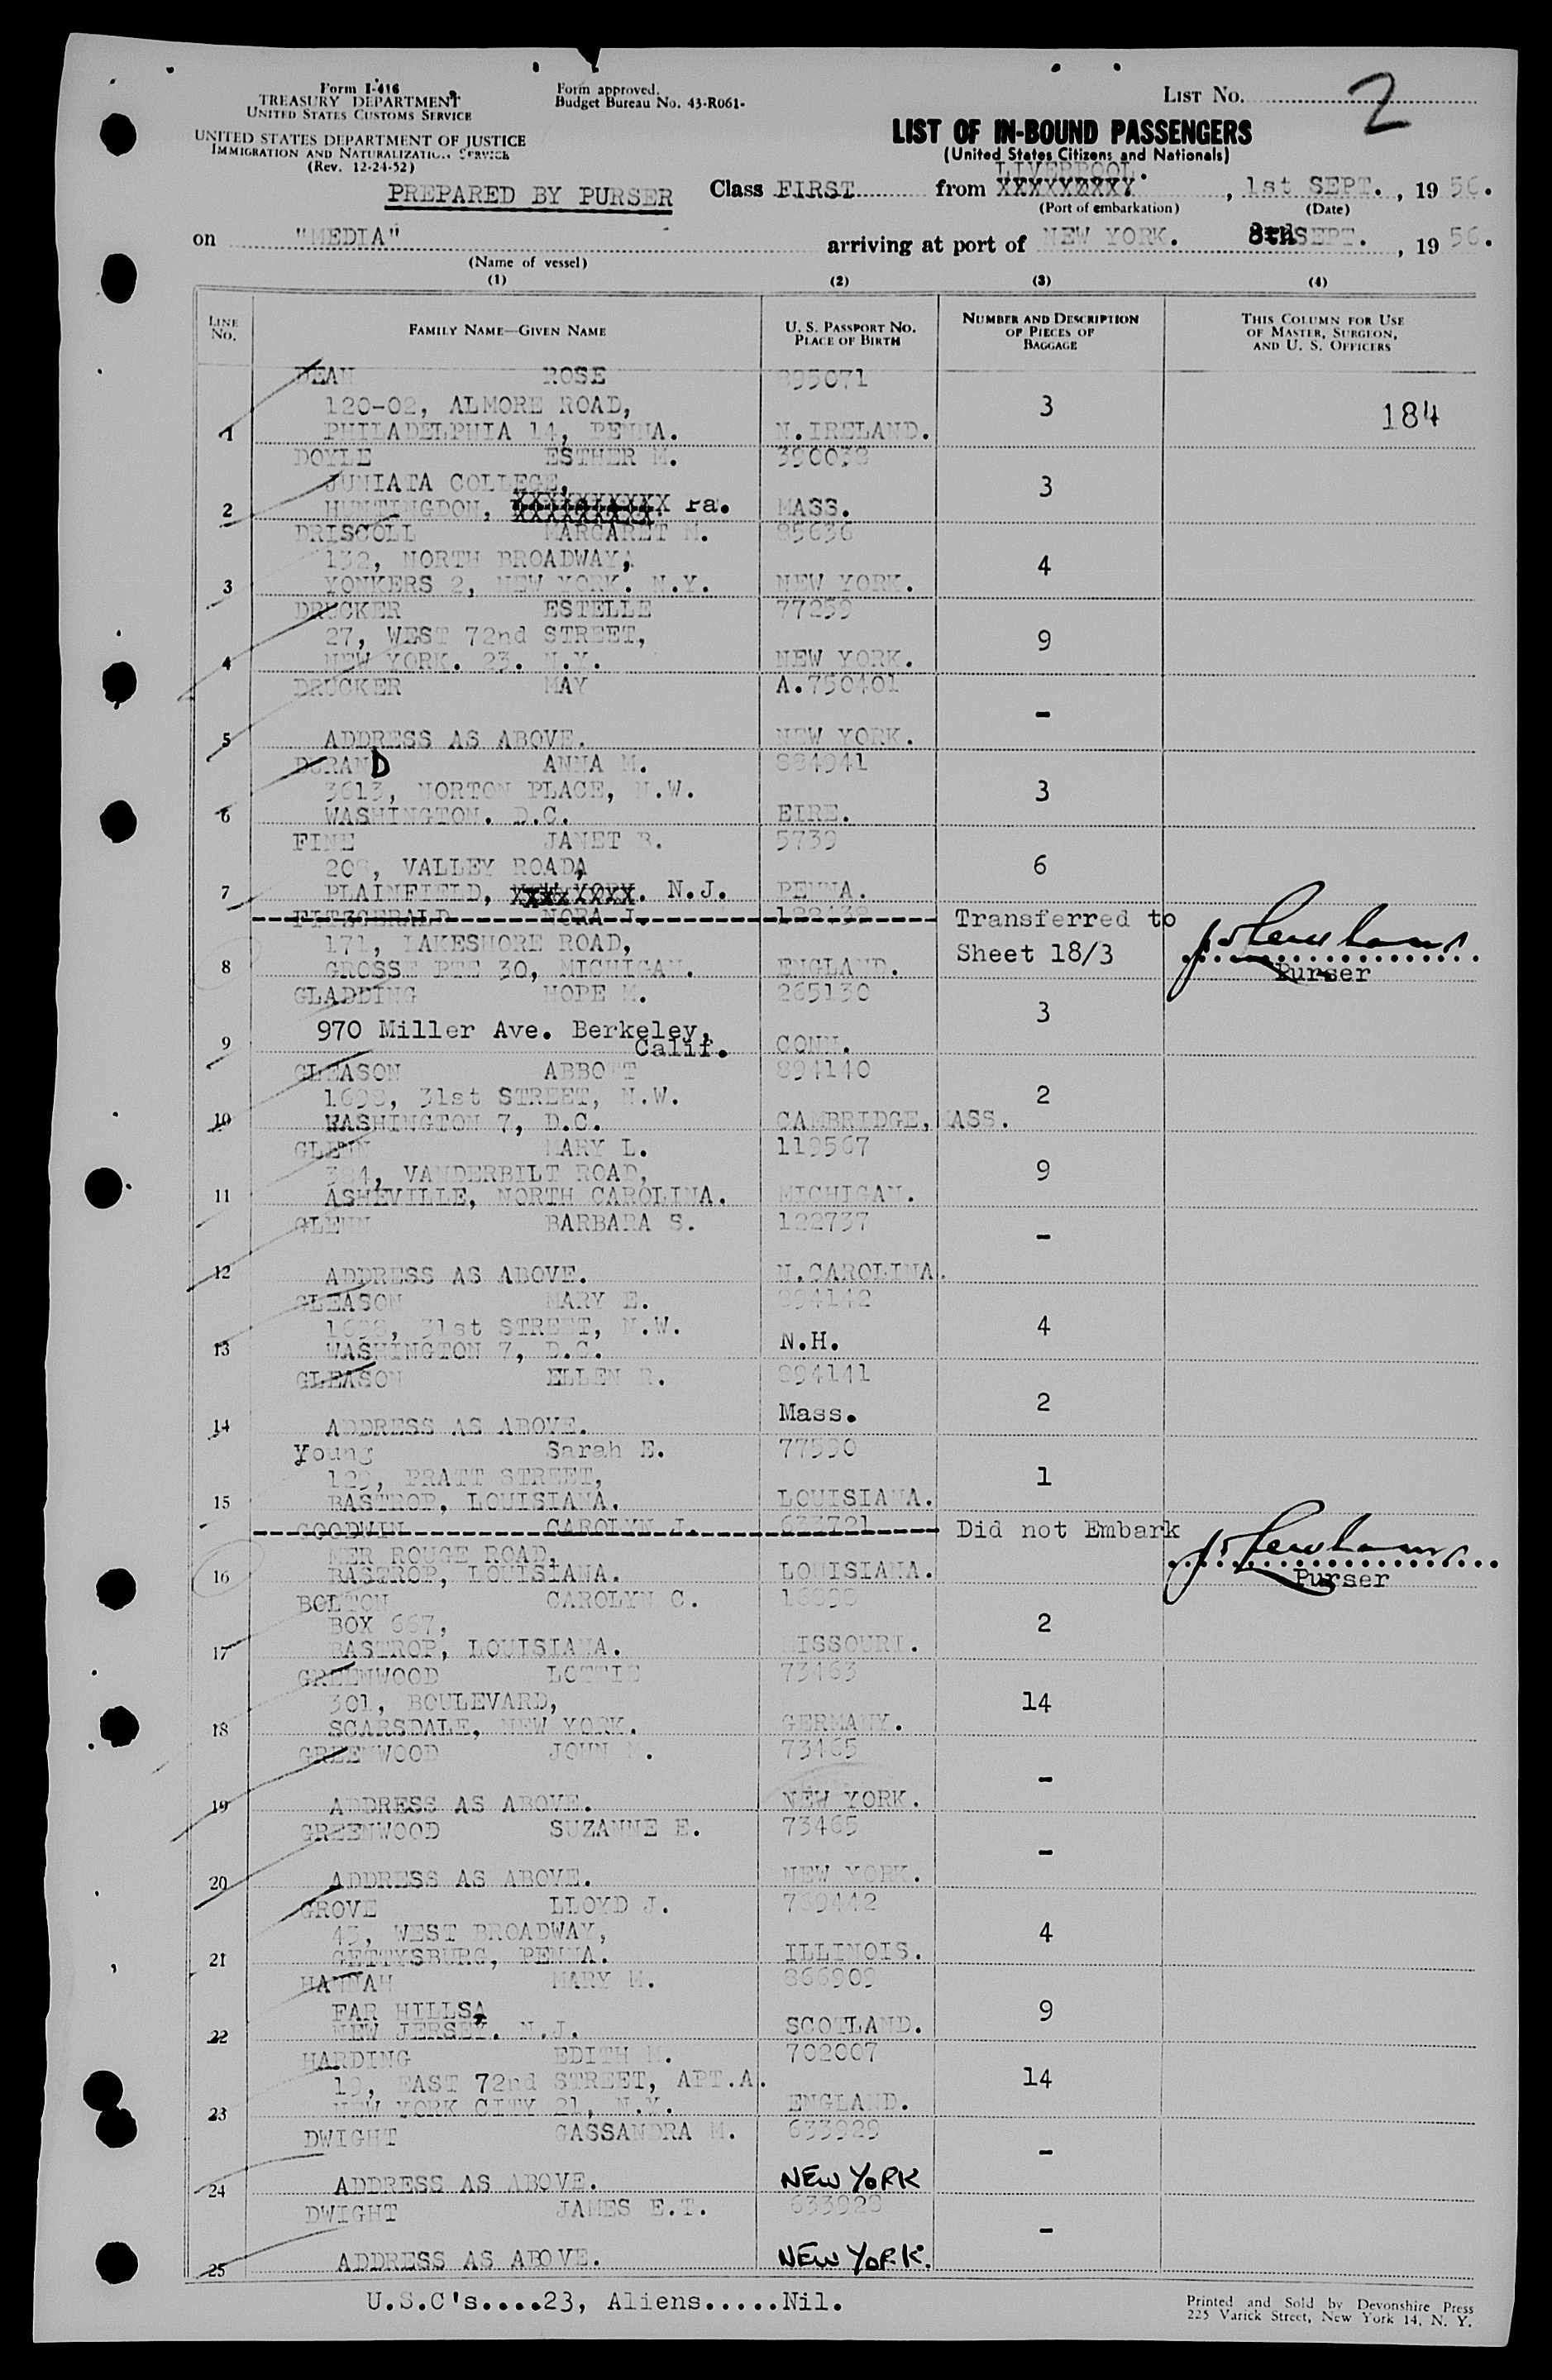 Form I-416
TREASURY DEPARTMENT
UNITED STATES CUSTOMS SERVICE
UNITED STATES DEPARTMENT OF JUSTICE
IMMIGRATION AND NATURALIZATION SERVICE
(Rev. 12-24-52)
Form approved.
Budget Bureau No. 43-R061-
LIST NO. 2
LIST OF IN-BOUND PASSENGERS
(United States Citizens and Nationals)
LIVERPOOL.
PREPARED BY PURSER Class FIRST from XXXXXXXXX , 1st SEPT. , 19 56.
(Port of embarkation) (Date)
on "MEDIA" arriving at port of NEW YORK. 8th SEPT. , 19 56.
(Name of vessel)
(1) (2) (3) (4)
LINE NO. FAMILY NAME—GIVEN NAME U. S. PASSPORT NO. PLACE OF BIRTH NUMBER AND DESCRIPTION OF PIECES OF BAGGAGE THIS COLUMN FOR USE OF MASTER, SURGEON, AND U. S. OFFICERS
DEAN ROSE 895071
120-02, ALMORE ROAD, 3 184
1 PHILADELPHIA 14, PENNA. N.IRELAND.
DOYLE ESTHER M. 390038
JUNIATA COLLEGE, 3
2 HUNTINGDON, XXXXXXXXXX Pa. MASS.
DRISCOLL MARGARET M. 85636
132, NORTH BROADWAY, 4
3 YONKERS 2, NEW YORK. N.Y. NEW YORK.
DRUCKER ESTELLE 77259
27, WEST 72nd STREET, 9
4 NEW YORK. 23. N.Y. NEW YORK.
DRUCKER MAY A.750401
-
5 ADDRESS AS ABOVE. NEW YORK.
DURAND ANNA M. 884941
3613, NORTON PLACE, N.W. 3
6 WASHINGTON. D.C. EIRE.
FINE JANET B. 5739
208, VALLEY ROAD, 6
7 PLAINFIELD, XXXXXXXX. N.J. PENNA.
FITZGERALD NORA J. Transferred to
171, LAKESHORE ROAD, Sheet 18/3
8 GROSSE PTE 30, MICHIGAN. ENGLAND. Purser
GLADDING HOPE M. 265130
970 Miller Ave. Berkeley, 3
9 Calif. CONN.
GLEASON ABBOTT 894140
1698, 31st STREET, N.W. 2
10 WASHINGTON 7, D.C. CAMBRIDGE, MASS.
GLENN MARY L. 119567
384, VANDERBILT ROAD, 9
11 ASHEVILLE, NORTH CAROLINA. MICHIGAN.
GLENN BARBARA S. 122737
-
12 ADDRESS AS ABOVE. N.CAROLINA.
GLEASON MARY E. 894142
1698, 31st STREET, N.W. 4
13 WASHINGTON 7, D.C. N.H.
GLEASON ELLEN R. 894141
2
14 ADDRESS AS ABOVE. Mass.
Young Sarah E. 77590
129, PRATT STREET, 1
15 BASTROP, LOUISIANA. LOUISIANA.
GOODWIN CAROLYN J. 633721 Did not Embark
MER ROUGE ROAD,
16 BASTROP, LOUISIANA. LOUISIANA. Purser
BOLTON CAROLYN C.
BOX 667, 2
17 BASTROP, LOUISIANA. MISSOURI.
GREENWOOD LOTTIE 73463
301, BOULEVARD, 14
18 SCARSDALE, NEW YORK. GERMANY.
GREENWOOD JOHN 73465
-
19 ADDRESS AS ABOVE. NEW YORK.
GREENWOOD SUZANNE E. 73465
-
20 ADDRESS AS ABOVE. NEW YORK.
GROVE LLOYD J. 739442
43, WEST BROADWAY, 4
21 GETTYSBURG, PENNA. ILLINOIS.
HANNAH MARY M. 866909
FAR HILLS, 9
22 NEW JERSEY. N.J. SCOTLAND.
HARDING EDITH M. 702007
19, EAST 72nd STREET, APT.A. 14
23 NEW YORK CITY 21, N.Y. ENGLAND.
DWIGHT CASSANDRA M. 633929
-
24 ADDRESS AS ABOVE. NEW YORK
DWIGHT JAMES E.T. 633928
-
25 ADDRESS AS ABOVE. NEW YORK.
U.S.C's....23, Aliens.....Nil.
Printed and Sold by Devonshire Press
225 Varick Street, New York 14, N. Y.